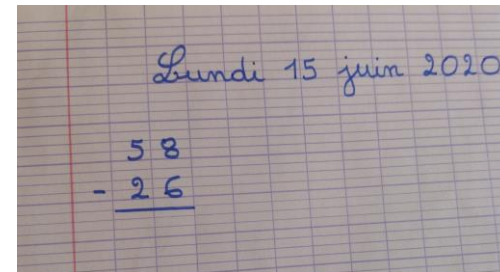 Lundi 15 juin 2020
58
- 26